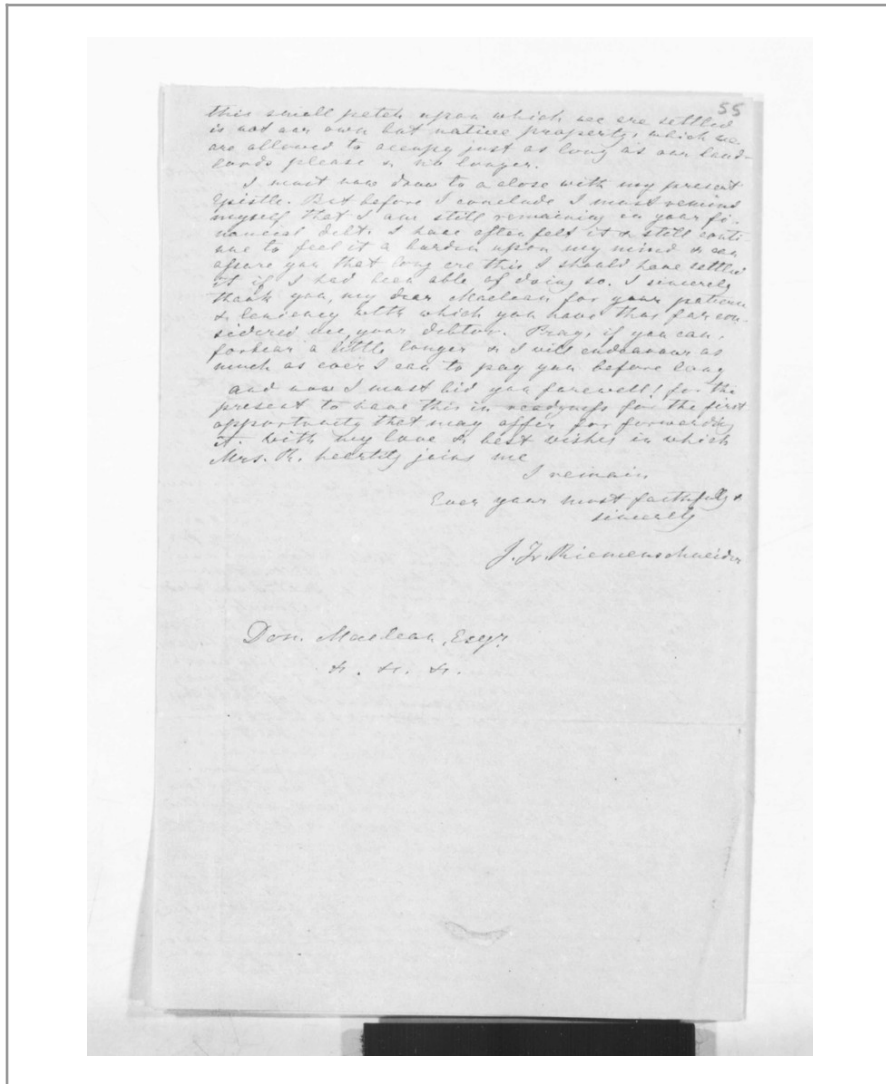 55
this small patch upon which we are settled
is not our own but native property, which we
are allowed to occupy just as long as our land-
lords please & no longer.
I must now draw to a close with my present
Epistle. But before I conclude I must remind
myself that I am still remaining in your fi-
nancial debt. I have often felt it & still conti-
nue to feel it a burden upon my mind & can
assure you that long ere this I should have settled
it if I had been able of doing so. I sincerely
thank you, my dear Maclean for your patience
& leniency with which you have thus far con-
sidered me, your debtor. Pray, if you can,
forbear a little longer & I will endeavour as
much as ever I can to pay you before long
and now I must bid you farewell! for the
present to have this in readyness for the first
opportunity that may offer for forwarding
it. With my love & best wishes in which
Mrs. R. heartily joins me
I remain
Ever your most faithfully &
sincerely
J. Fr. Riemenschneider
Don. Maclean, Esqr.
&. &. &.